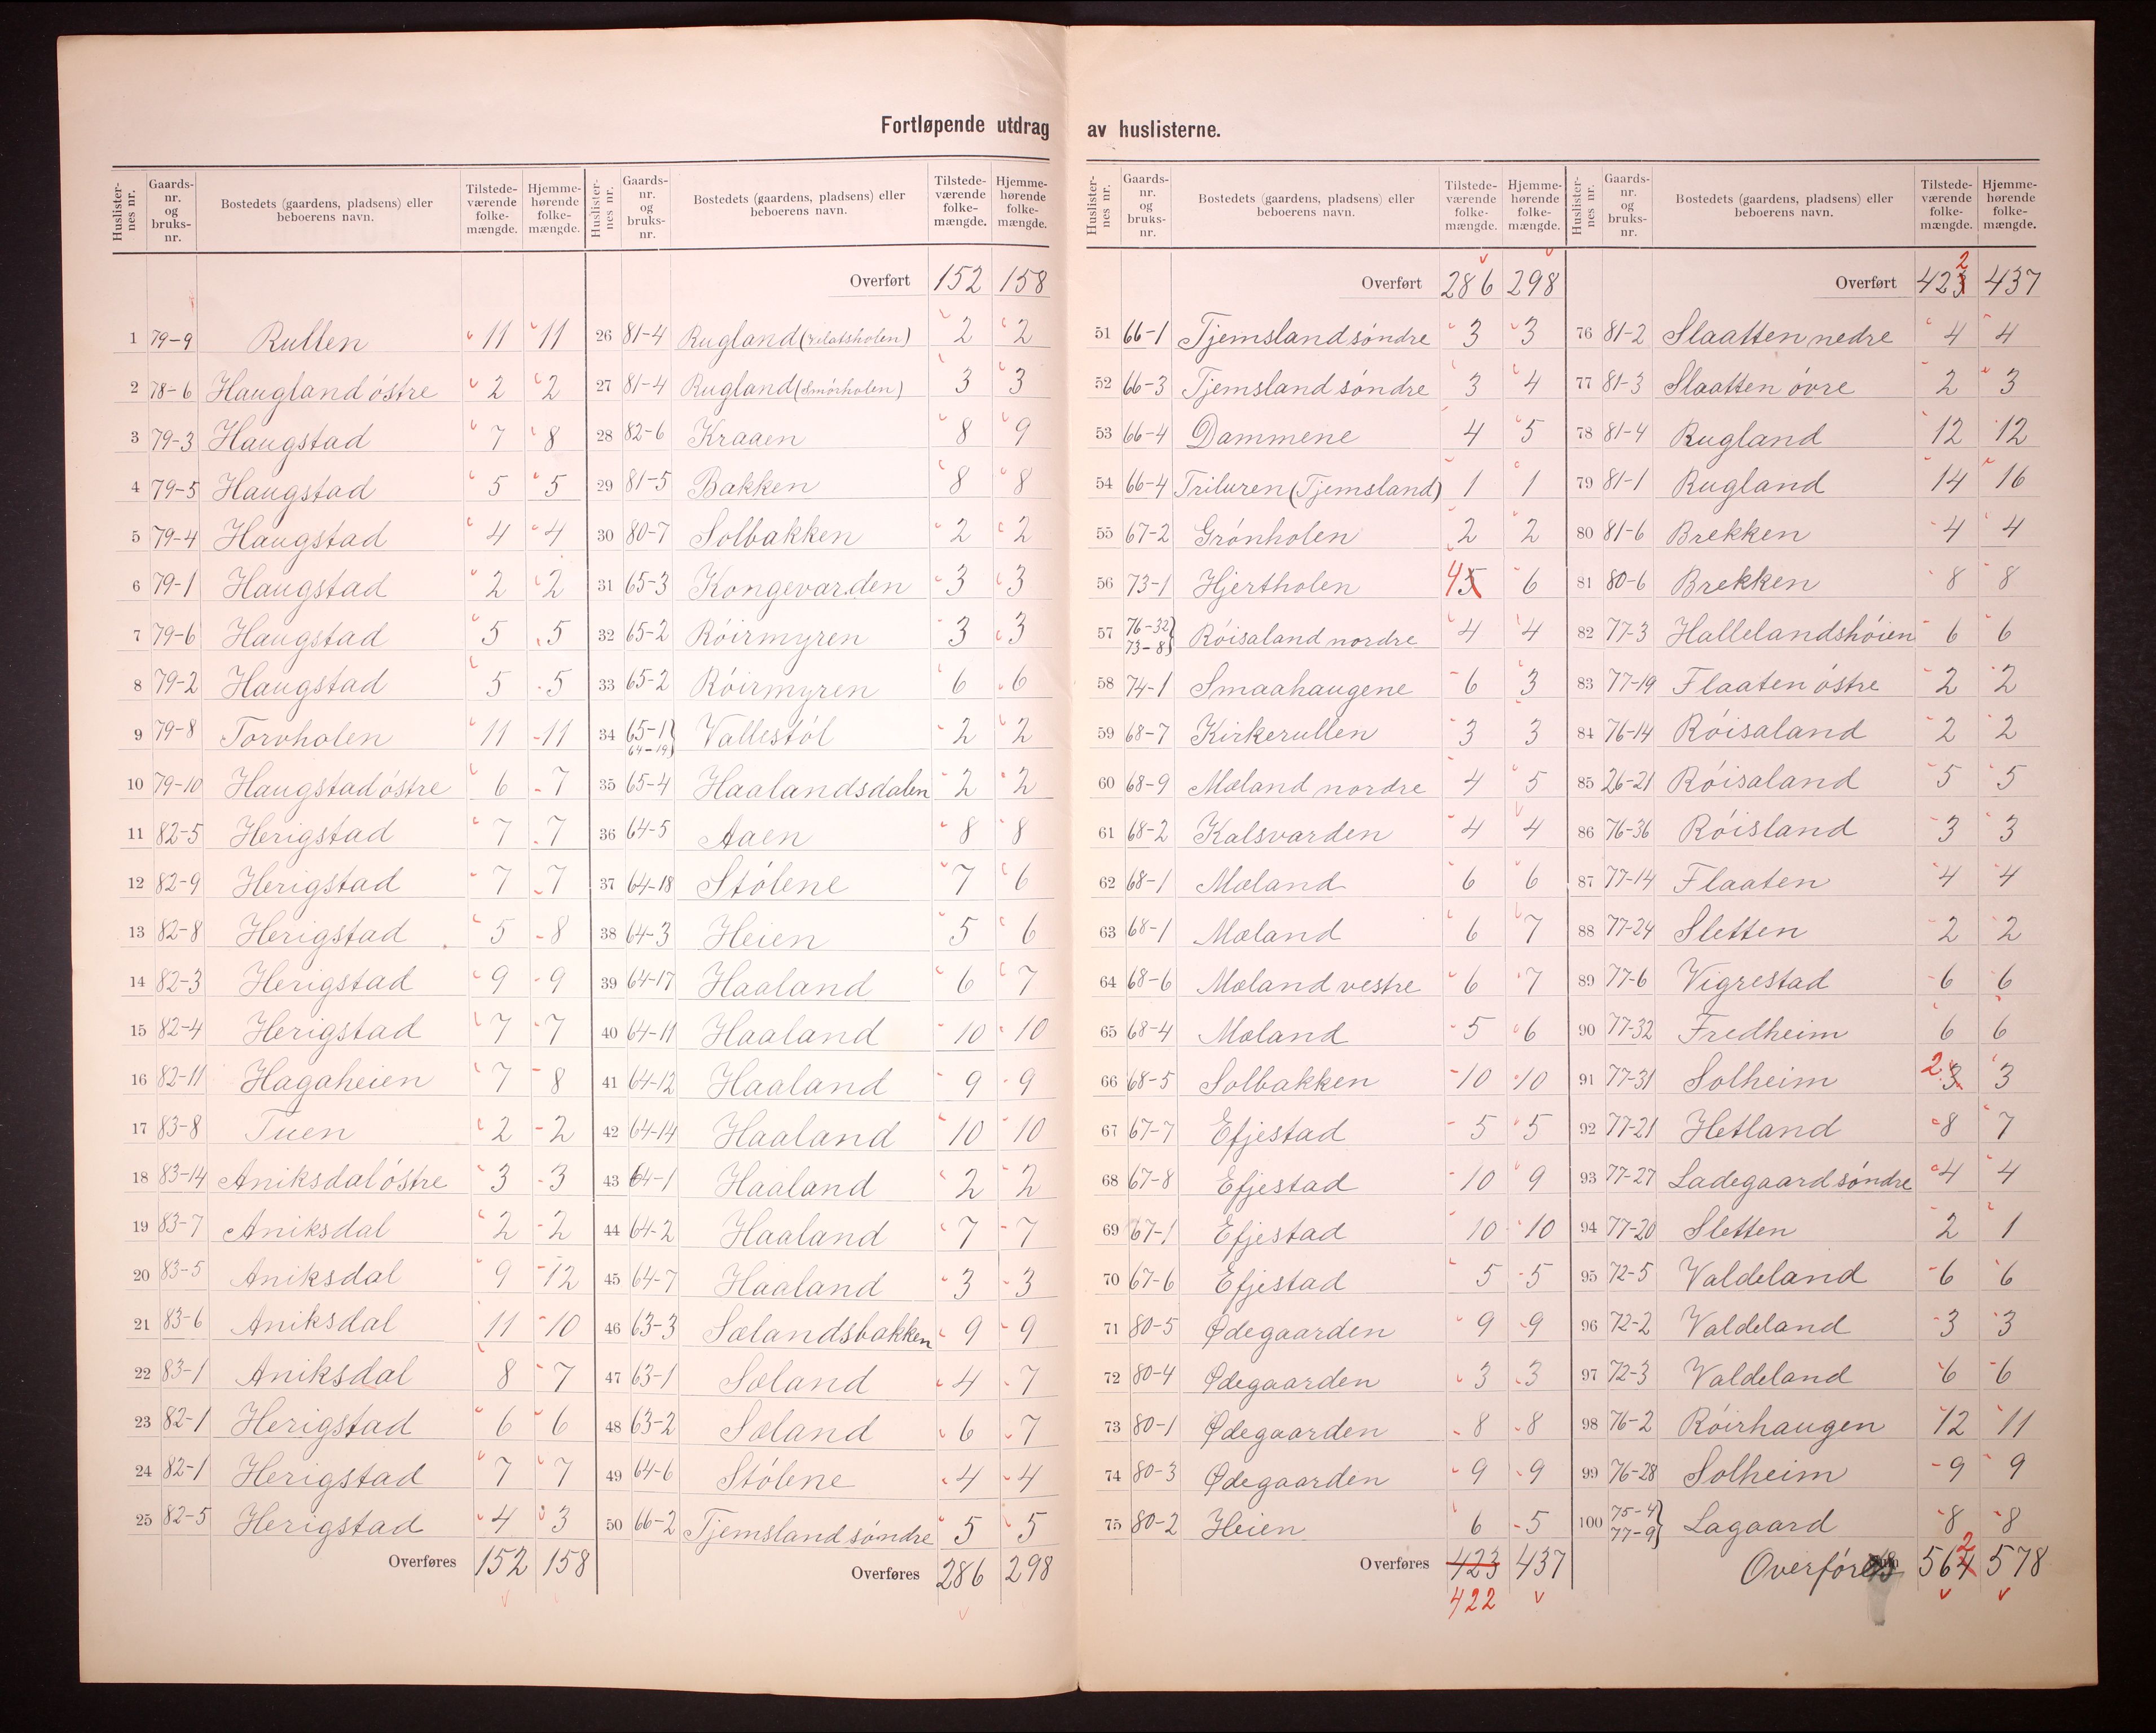 Fortløpende utdrag av huslisterne.
Huslister-nes nr. Gaards-nr. og bruks-nr. Bostedets (gaardens, pladsens) eller beboerens navn. Tilstede-værende folke-mængde. Hjemme-hørende folke-mængde.
1 79-9 Rullen 11 11
2 78-6 Haugland östre 2 2
3 79-3 Haugstad 7 8
4 79-5 Haugstad 5 5
5 79-4 Haugstad 4 4
6 79-1 Haugstad 2 2
7 79-6 Haugstad 5 5
8 79-2 Haugstad 5 5
9 79-8 Torvholen 11 11
10 79-10 Haugstad östre 6 7
11 82-5 Herigstad 7 7
12 82-9 Herigstad 7 7
13 82-8 Herigstad 5 8
14 82-3 Herigstad 9 9
15 82-4 Herigstad 7 7
16 82-11 Hagaheien 7 8
17 83-8 Tuen 2 2
18 83-14 Aniksdal östre 3 3
19 83-7 Aniksdal 2 2
20 83-5 Aniksdal 9 12
21 83-6 Aniksdal 11 10
22 83-1 Aniksdal 8 7
23 82-1 Herigstad 6 6
24 82-1 Herigstad 7 7
25 82-5 Herigstad 4 3
Overføres 152 158
Huslister-nes nr. Gaards-nr. og bruks-nr. Bostedets (gaardens, pladsens) eller beboerens navn. Tilstede-værende folke-mængde. Hjemme-hørende folke-mængde.
Overført 152 158
26 81-4 Rugland 2 2
27 81-4 Rugland (Smörholen) 3 3
28 82-6 Kraaen 8 9
29 81-5 Bakken 8 8
30 80-7 Solbakken 2 2
31 65-3 Kongevarden 3 3
32 65-2 Röirmyren 3 3
33 65-2 Röirmyren 6 6
34 65-1 64-19 } Vallestöl 2 2
35 65-4 Haalandsdalen 2 2
36 64-5 Aaen 8 8
37 64-18 Stölene 7 6
38 64-3 Heien 5 6
39 64-17 Haaland 6 7
40 64-11 Haaland 10 10
41 64-12 Haaland 9 9
42 64-14 Haaland 10 10
43 64-1 Haaland 2 2
44 64-2 Haaland 7 7
45 64-7 Haaland 3 3
46 63-3 Sælandsbakken 9 9
47 63-1 Sæland 4 7
48 63-2 Sæland 6 7
49 64-6 Stölene 4 4
50 66-2 Tjemsland söndre 5 5
Overføres 286 298
Huslister-nes nr. Gaards-nr. og bruks-nr. Bostedets (gaardens, pladsens) eller beboerens navn. Tilstede-værende folke-mængde. Hjemme-hørende folke-mængde.
Overført 286 298
51 66-1 Tjemsland söndre 3 3
52 66-3 Tjemsland söndre 3 4
53 66-4 Dammene 4 5
54 66-4 Triluren (Tjemsland) 1 1
55 67-2 Grönholen 2 2
56 73-1 Hjertholen 4 5 6
57 76-32 73-8 } Röisaland nordre 4 4
58 74-1 Smaahaugene 6 3
59 68-7 Kirkerullen 3 3
60 68-9 Mæland nordre 4 5
61 68-2 Kalsvarden 4 4
62 68-1 Mæland 6 6
63 68-1 Mæland 6 7
64 68-6 Mæland vestre 6 7
65 68-4 Mæland 5 6
66 68-5 Solbakken 10 10
67 67-7 Efjestad 5 5
68 67-8 Efjestad 10 9
69 67-1 Efjestad 10 10
70 67-6 Efjestad 5 5
71 80-5 Ødegaarden 9 9
72 80-4 Ødegaarden 3 3
73 80-1 Ødegaarden 8 8
74 80-3 Ødegaarden 9 9
75 80-2 Heien 6 5
Overføres 423 437
422
Huslister-nes nr. Gaards-nr. og bruks-nr. Bostedets (gaardens, pladsens) eller beboerens navn. Tilstede-værende folke-mængde. Hjemme-hørende folke-mængde.
2
Overført 423 437
76 81-2 Slaatten nedre 4 4
77 81-3 Slaatten övre 2 3
78 81-4 Rugland 12 12
79 81-1 Rugland 14 16
80 81-6 Brekken 4 4
81 80-6 Brekken 8 8
82 77-3 Hallelandshöien 6 6
83 77-19 Flaaten östre 2 2
84 76-14 Röisaland 2 2
85 26-21 Röisaland 5 5
86 76-36 Röisland 3 3
87 77-14 Flaaten 4 4
88 77-24 Sletten 2 2
89 77-6 Vigrestad 6 6
90 77-32 Fredheim 6 6
91 77-31 Solheim 2 3 3
92 77-21 Hetland 8 7
93 77-27 Ladegaard söndre 4 4
94 77-20 Sletten 2 1
95 72-5 Valdeland 6 6
96 72-2 Valdeland 3 3
97 72-3 Valdeland 6 6
98 76-2 Röirhaugen 12 11
99 76-28 Solheim 9 9
100 75-4 77-9 } Lagaard 8 8
2
Overföres 564 578